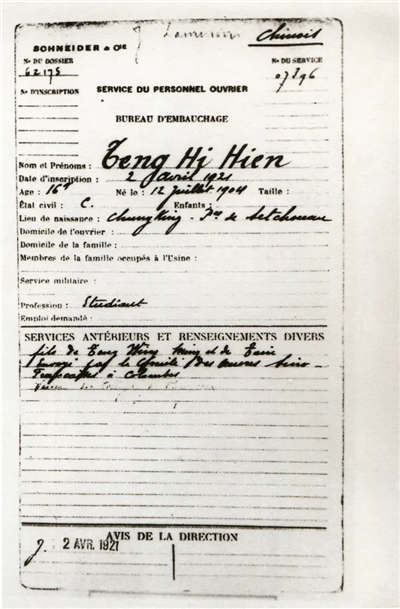 Chinois
SCHNEIDER & Cie
No DU DOSSIER
No DU SERVICE
62175
07396
No D'INSCRIPTION
SERVICE DU PERSONNEL OUVRIER
BUREAU D'EMBAUCHAGE
Nom et Prénoms : Teng Hi Hien
Date d'inscription : 2 avril 1921
Age : 16 Né le : 12 juillet 1904 Taille :
État civil : C. Enfants :
Lieu de naissance : Chungking - de Setchouan
Domicile de l'ouvrier :
Domicile de la famille :
Membres de la famille occupés à l'Usine :
Service militaire :
Profession : Etudiant
Emploi demandé :
SERVICES ANTÉRIEURS ET RENSEIGNEMENTS DIVERS
fils de Teng Wen Ming et de
Envoyé par le Comité des Œuvres Sino-
Françaises à Colombes
AVIS DE LA DIRECTION
2 AVR. 1921